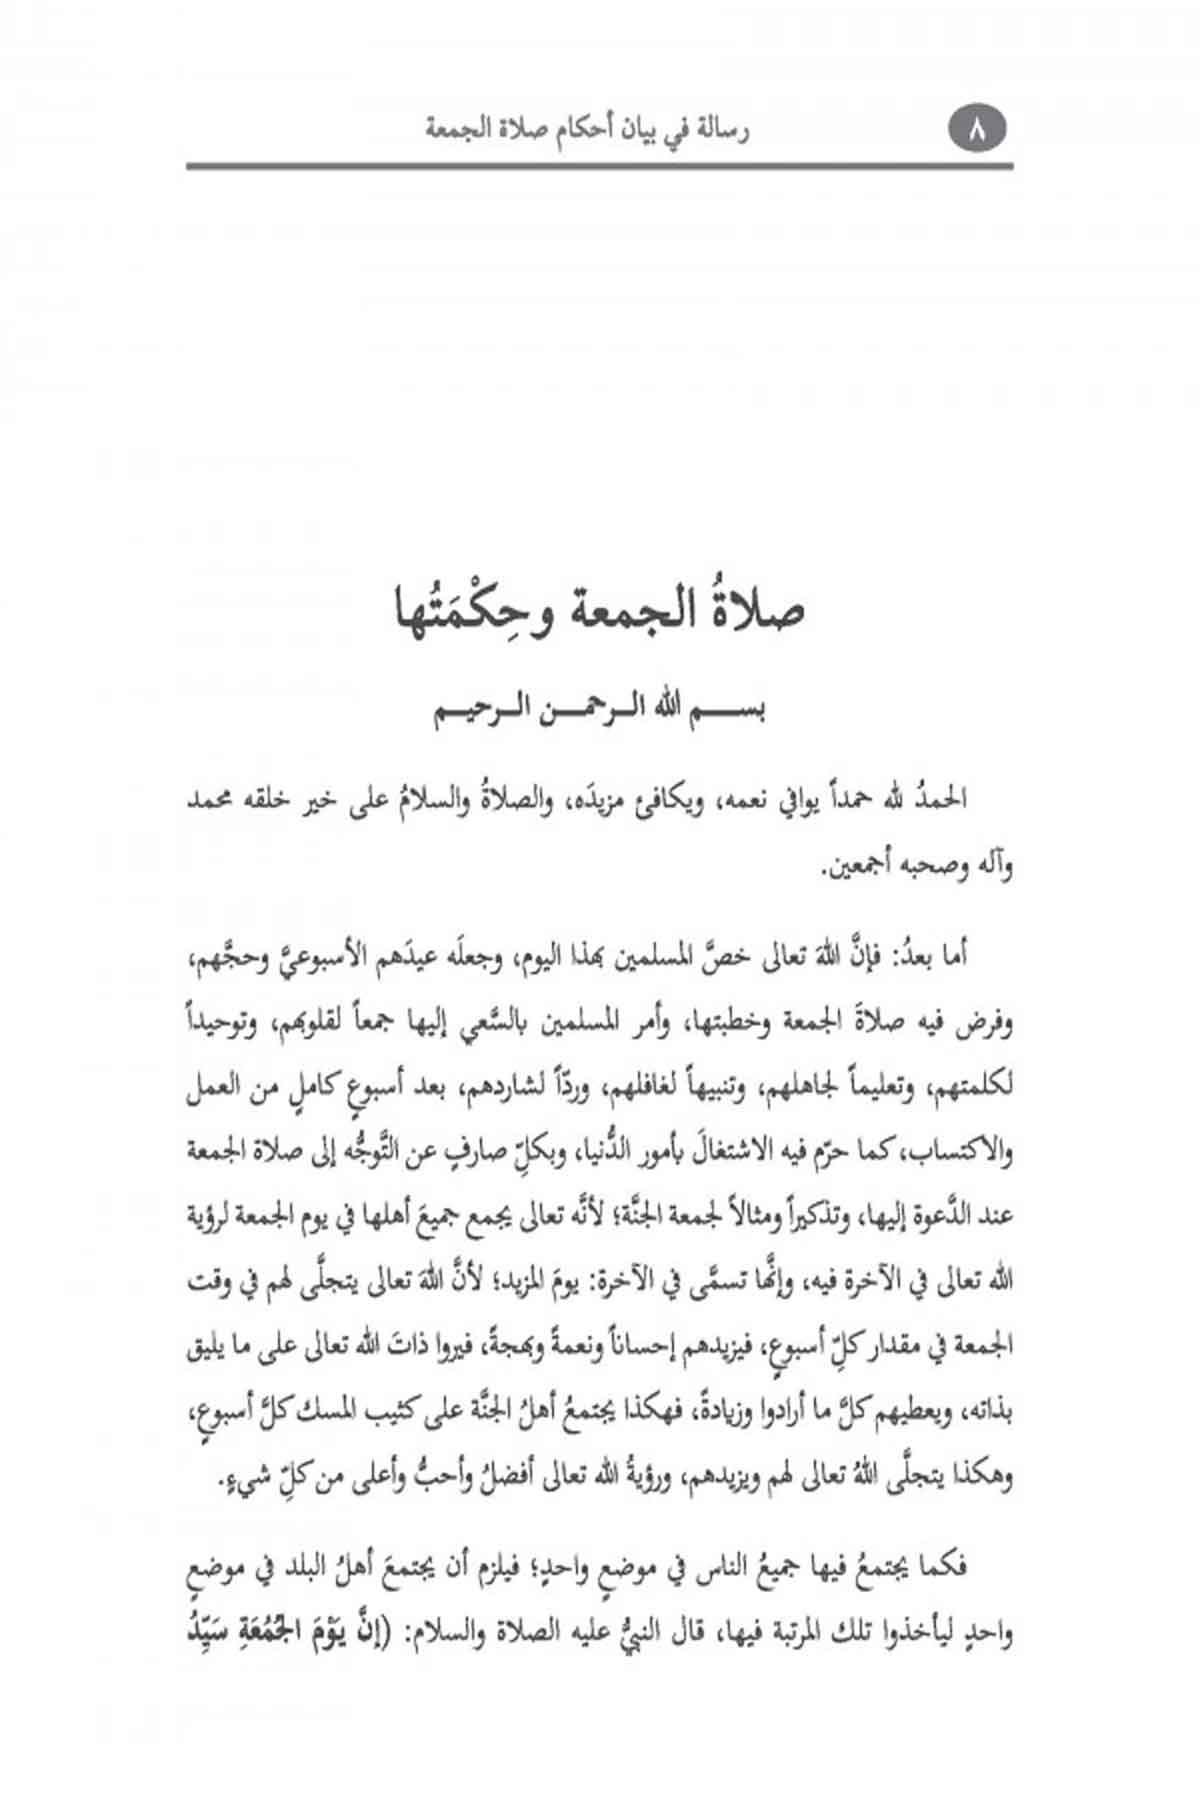 ٨
رسالة في بيان أحكام صلاة الجمعة
صلاةُ الجمعة وحِكْمَتُها
بســـم الله الـرحمـــن الـرحيـم
الحمدُ لله حمداً يوافي نعمه، ويكافئ مزيدَه، والصلاةُ والسلامُ على خير خلقه محمد
وآله وصحبه أجمعين.
أما بعدُ: فإنَّ اللهَ تعالى خصَّ المسلمين بهذا اليوم، وجعلَه عيدَهم الأسبوعيَّ وحجَّهم،
وفرض فيه صلاةَ الجمعة وخطبتها، وأمر المسلمين بالسَّعي إليها جمعاً لقلوبهم، وتوحيداً
لكلمتهم، وتعليماً لجاهلهم، وتنبيهاً لغافلهم، وردّاً لشاردهم، بعد أسبوعٍ كاملٍ من العمل
والاكتساب، كما حرّم فيه الاشتغالَ بأمور الدُّنيا، وبكلِّ صارفٍ عن التَّوجُّه إلى صلاة الجمعة
عند الدَّعوة إليها، وتذكيراً ومثالاً لجمعة الجنَّة؛ لأنَّه تعالى يجمع جميعَ أهلها في يوم الجمعة لرؤية
الله تعالى في الآخرة فيه، وإنَّها تسمَّى في الآخرة: يومَ المزيد؛ لأنَّ اللهَ تعالى يتجلَّى لهم في وقت
الجمعة في مقدار كلِّ أسبوعٍ، فيزيدهم إحساناً ونعمةً وبهجةً، فيروا ذاتَ الله تعالى على ما يليق
بذاته، ويعطيهم كلَّ ما أرادوا وزيادةً، فهكذا يجتمعُ أهلُ الجنَّة على كثيب المسك كلَّ أسبوعٍ،
وهكذا يتجلَّى اللهُ تعالى لهم ويزيدهم، ورؤيةُ الله تعالى أفضلُ وأحبُّ وأعلى من كلِّ شيءٍ.
فكما يجتمعُ فيها جميعُ الناس في موضعٍ واحدٍ؛ فيلزم أن يجتمعَ أهلُ البلد في موضعٍ
واحدٍ ليأخذوا تلك المرتبة فيها، قال النبيُّ عليه الصلاة والسلام: (إنَّ يَوْمَ الجُمُعَةِ سَيِّدُ